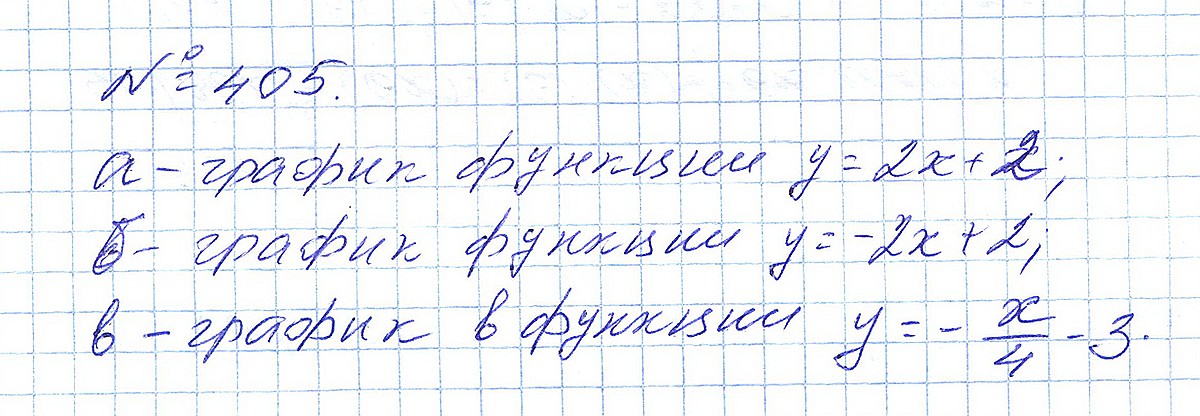 № 405.
а – график функции y = 2x + 2;
б – график функции y = -2x + 2;
в – график в функции y = - x/4 - 3.